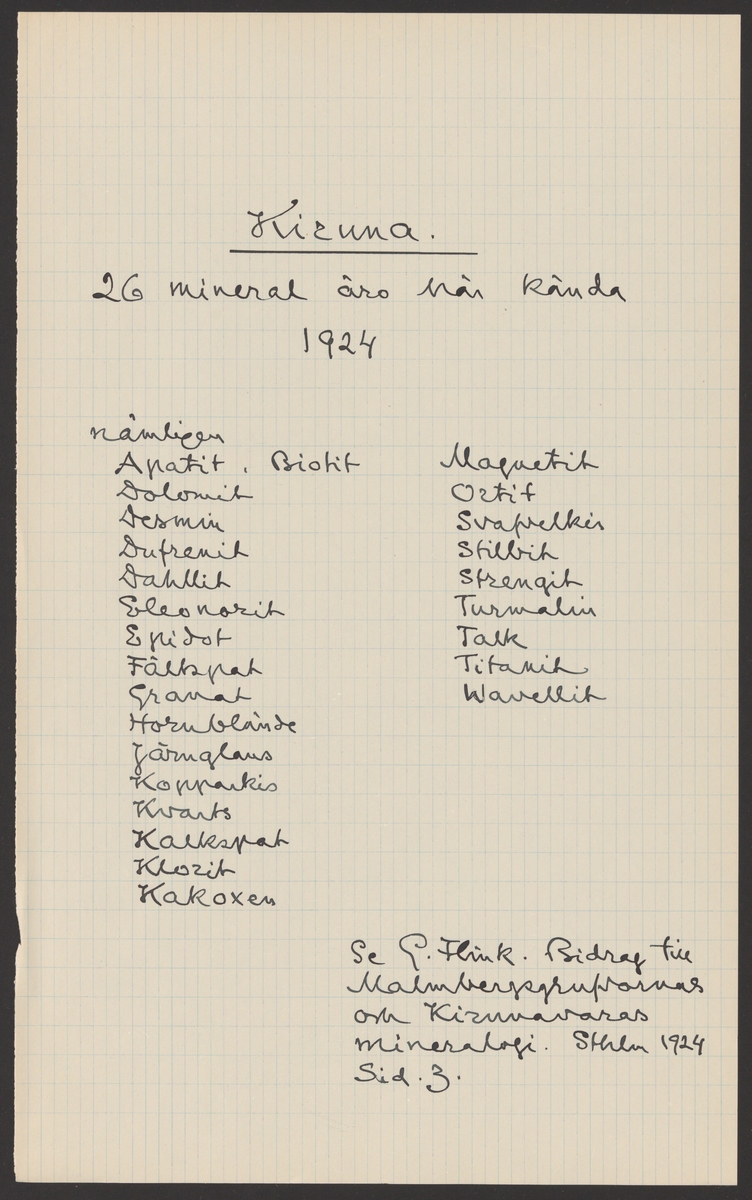 Kiruna.
26 mineral äro här kända
1924
nämligen
Apatit, Biotit
Dolomit
Desmin
Dufrenit
Dahllit
Eleonorit
Epidot
Fältspat
Granat
Hornblände
Järnglans
Kopparkis
Kvarts
Kalkspat
Klorit
Kakoxen
Magnetit
Ortit
Svavelkis
Stilbit
Strengit
Turmalin
Talk
Titanit
Wavellit
Se G. Flink. Bidrag till
Malmbergsgruvornas
och Kirunavaras
mineralogi. Sthlm 1924
Sid. 3.